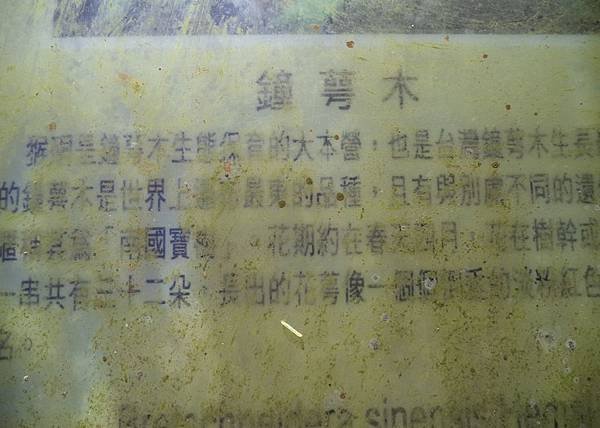 鐘萼木
猴硐是鐘萼木生態保育的大本營，也是台灣鐘萼木生長
的鐘萼木是世界上 最東的品種，且有與別處不同的遺
為「南國寶 」。花期約在春天四月，花在樹幹或
一串共有三十二朵，長出的花萼像一個個 的淡粉紅色
名。
sinensis